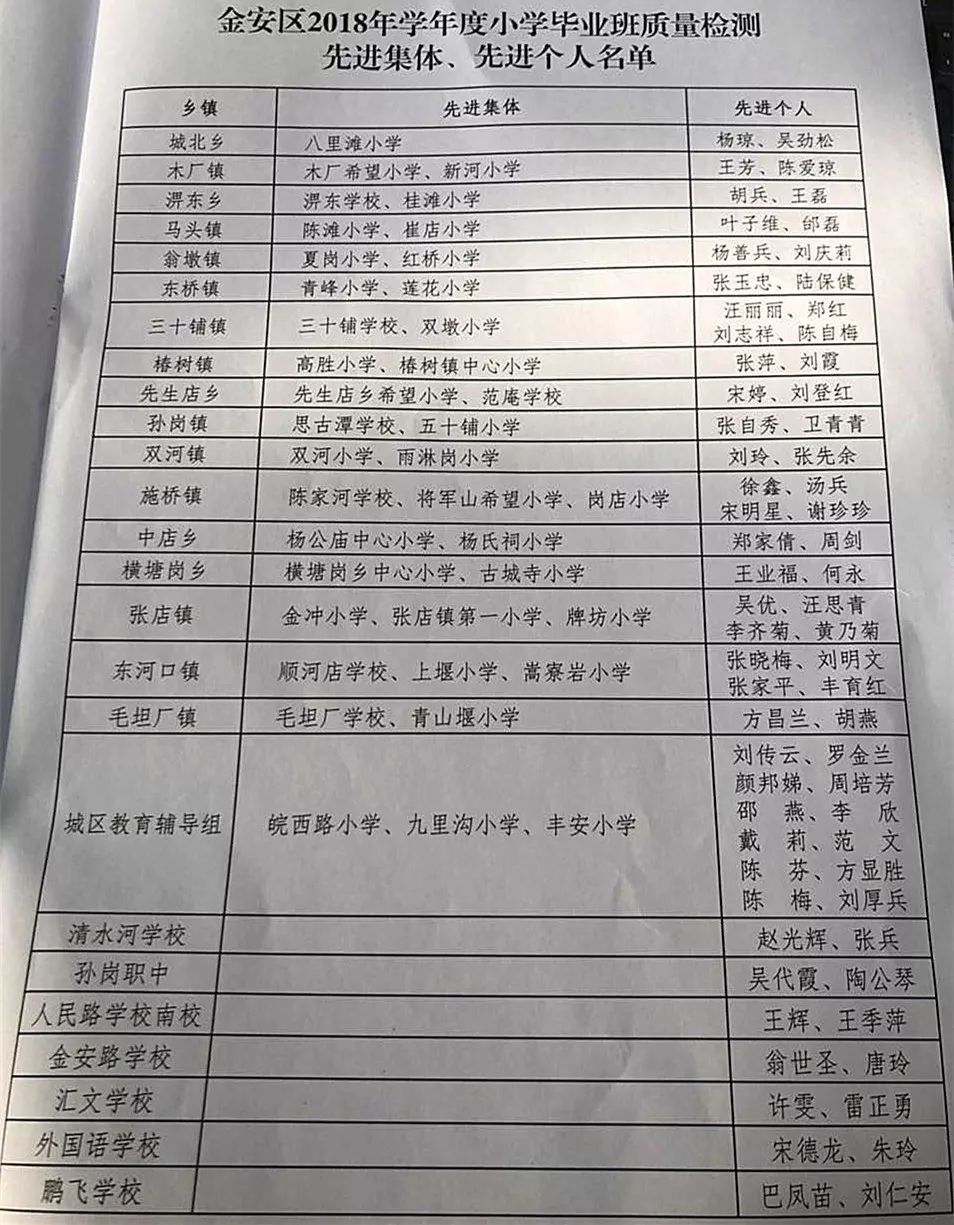 金安区2018年学年度小学毕业班质量检测
先进集体、先进个人名单
乡镇 先进集体 先进个人
城北乡 八里滩小学 杨琼、吴劲松
木厂镇 木厂希望小学、新河小学 王芳、陈爱琼
淠东乡 淠东学校、桂滩小学 胡兵、王磊
马头镇 陈滩小学、崔店小学 叶子维、邰磊
翁墩镇 夏岗小学、红桥小学 杨善兵、刘庆莉
东桥镇 青峰小学、莲花小学 张玉忠、陆保健
三十铺镇 三十铺学校、双墩小学 汪丽丽、郑红
刘志祥、陈自梅
椿树镇 高胜小学、椿树镇中心小学 张萍、刘霞
先生店乡 先生店乡希望小学、范庵学校 宋婷、刘登红
孙岗镇 思古潭学校、五十铺小学 张自秀、卫青青
双河镇 双河小学、雨淋岗小学 刘玲、张先余
施桥镇 陈家河学校、将军山希望小学、岗店小学 徐鑫、汤兵
宋明星、谢珍珍
中店乡 杨公庙中心小学、杨氏祠小学 郑家倩、周剑
横塘岗乡 横塘岗乡中心小学、古城寺小学 王业福、何永
张店镇 金冲小学、张店镇第一小学、牌坊小学 吴优、汪思青
李齐菊、黄乃菊
东河口镇 顺河店学校、上堰小学、嵩寮岩小学 张晓梅、刘明文
张家平、丰育红
毛坦厂镇 毛坦厂学校、青山堰小学 方昌兰、胡燕
城区教育辅导组 皖西路小学、九里沟小学、丰安小学 刘传云、罗金兰
颜邦娣、周培芳
邵 燕、李 欣
戴 莉、范 文
陈 芬、方显胜
陈 梅、刘厚兵
清水河学校 赵光辉、张兵
孙岗职中 吴代霞、陶公琴
人民路学校南校 王辉、王季萍
金安路学校 翁世圣、唐玲
汇文学校 许雯、雷正勇
外国语学校 宋德龙、朱玲
鹏飞学校 巴凤苗、刘仁安